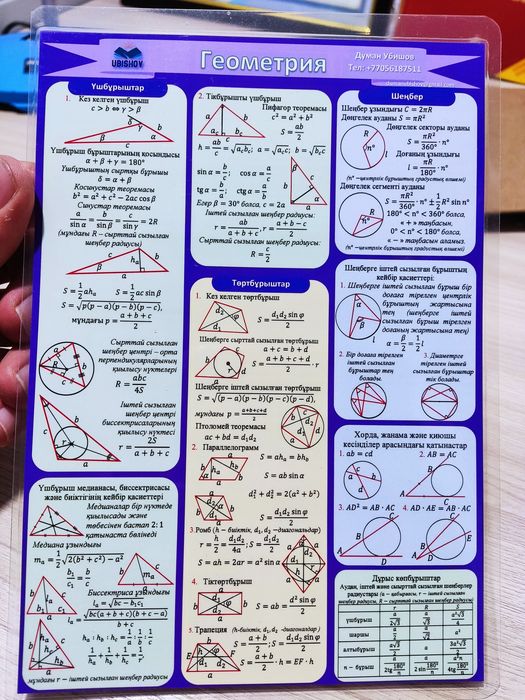 UBISHOV
Геометрия
Думан Убишов
Тел: +77056187511
Үшбұрыштар
1. Кез келген үшбұрыш
c > b ⇔ γ > β
Үшбұрыш бұрыштарының қосындысы
α + β + γ = 180°
Үшбұрыштың сыртқы бұрышы
δ = α + β
Косинустар теоремасы
b² = a² + c² − 2ac cos β
Синустар теоремасы
a/sin α = b/sin β = c/sin γ = 2R
(мұндағы R – сырттай сызылған
шеңбер радиусы)
S = 1/2 ah_a S = 1/2 ac sin β
S = √(p(p − a)(p − b)(p − c)),
мұндағы p = (a + b + c)/2
Сырттай сызылған
шеңбер центрі – орта
перпендикулярларының
қиылысу нүктелері
R = abc/4S
Іштей сызылған
шеңбер центрі
биссектрисаларының
қиылысу нүктесі
r = 2S/(a + b + c)
Үшбұрыш медианасы, биссектрисасы
және биіктігінің кейбір қасиеттері
Медианалар бір нүктеде
қиылысады және
төбесінен бастап 2: 1
қатынаста бөлінеді
Медиана ұзындығы
m_a = 1/2 √(2(b² + c²) − a²)
b₁/c₁ = b/c
Биссектриса ұзындығы
l_a = √(bc − b₁c₁)
l_a = √(bc(a + b + c)(b + c − a))/(b + c)
h_a : h_b : h_c = 1/a : 1/b : 1/c
1/h_a + 1/h_b + 1/h_c = 1/r
мұндағы r – іштей сызылған шеңбер радиусы
2. Тікбұрышты үшбұрыш
Пифагор теоремасы
c² = a² + b²
S = ab/2
h = ab/c = √(a_c b_c); a = √(c a_c); b = √(c b_c)
sin α = a/c; cos α = b/c
tg α = a/b; ctg α = b/a
Егер β = 30° болса, c = 2a
Іштей сызылған шеңбер радиусы:
r = ab/(a + b + c), r = (a + b − c)/2
Сырттай сызылған шеңбер радиусы:
R = c/2
Төртбұрыштар
1. Кез келген төртбұрыш
S = d₁d₂ sin φ/2
Шеңберге сырттай сызылған төртбұрыш
a + c = b + d
S = (a + b + c + d)/2 · r
Шеңберге іштей сызылған төртбұрыш
S = √((p − a)(p − b)(p − c)(p − d)),
мұндағы p = (a+b+c+d)/2
Птоломей теоремасы
ac + bd = d₁d₂
2. Параллелограмм
S = ah_a = bh_b
S = ab sin α
d₁² + d₂² = 2(a² + b²)
S = d₁d₂ sin φ/2
3. Ромб (h – биіктік, d₁, d₂ -диагональдар)
r = h/2 = d₁d₂/4a; S = d₁d₂/2
S = ah = 2ar = a² sin α
4. Тіктөртбұрыш
S = ab = d² sin φ/2
5. Трапеция (h-биіктік, d₁, d₂ -диагональдар)
S = (a + b)/2; S = d₁d₂ sin φ/2
S = (a + b)/2 · h = EF · h
Шеңбер
Шеңбер ұзындығы C = 2πR
Дөңгелек ауданы S = πR²
Дөңгелек секторы ауданы
S = πR²/360° · n°
Доғаның ұзындығы
l = πR/180° · n°
(n° –центрлік бұрыштың градустық өлшемі)
Дөңгелек сегменті ауданы
S = πR²/360° · n° ± 1/2 R² sin n°
180° < n° < 360° болса,
« + » таңбасын,
0° < n° < 180° болса,
« − » таңбасын аламыз.
(n° –центрлік бұрыштың градустық өлшемі)
Шеңберге іштей сызылған бұрыштың
кейбір қасиеттері:
1. Шеңберге іштей сызылған бұрыш бір
доғаға тірелген центрлік
бұрыштың жартысына
тең (шеңберге іштей
сызылған бұрыш тірелген
доғаның жартысына тең)
α = β/2 = 1/2 l
2. Бір доғаға тірелген
іштей сызылған
бұрыштар тең
болады.
3. Диаметрге
тірелген іштей
сызылған бұрыш
тік болады.
Хорда, жанама және қиюшы
кесінділер арасындағы қатынастар
1. ab = cd
2. AB = AC
3. AD² = AB · AC
4. AD · AE = AB · AC
Дұрыс көпбұрыштар
Аудан, іштей және сырттай сызылған шеңберлер
радиустары (a – қабырғасы, r – іштей сызылған
шеңбер радиусы, R – сырттай сызылған шеңбер радиусы)
r R S
үшбұрыш a/2√3 a/√3 a²√3/4
шаршы a/2 a/√2 a²
алтыбұрыш a√3/2 a 3a²√3/2
n – бұрыш a/(2tg 180°/n) a/(2 sin 180°/n) a²n/(4tg 180°/n)